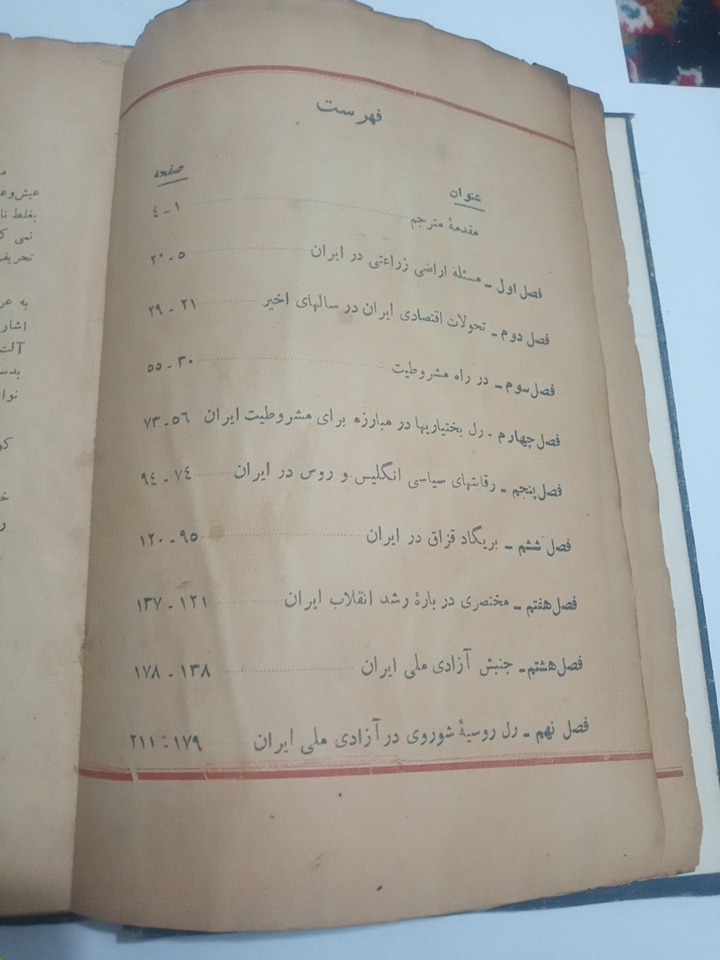 فهرست
عنوان صفحه
مقدمهٔ مترجم ۱ـ۴
فصل اول ـ مسئلهٔ اراضی زراعتی در ایران ۵ـ۲۰
فصل دوم ـ تحولات اقتصادی ایران در سالهای اخیر ۲۱ ـ ۲۹
فصل سوم ـ در راه مشروطیت ۳۰ ـ ۵۵
فصل چهارم ـ رل بختیاریها در مبارزه برای مشروطیت ایران ۵۶ ـ ۷۳
فصل پنجم ـ رقابتهای سیاسی انگلیس و روس در ایران ۷۴ ـ ۹۴
فصل ششم ـ بریگاد قزاق در ایران ۹۵ـ ۱۲۰
فصل هفتم ـ مختصری در بارهٔ رشد انقلاب ایران ۱۲۱ ـ ۱۳۷
فصل هشتم ـ جنبش آزادی ملی ایران ۱۳۸ ـ ۱۷۸
فصل نهم ـ رل روسیهٔ شوروی در آزادی ملی ایران ۱۷۹ : ۲۱۱
بغلط
نمی
تحریف
به
آلت
نوا